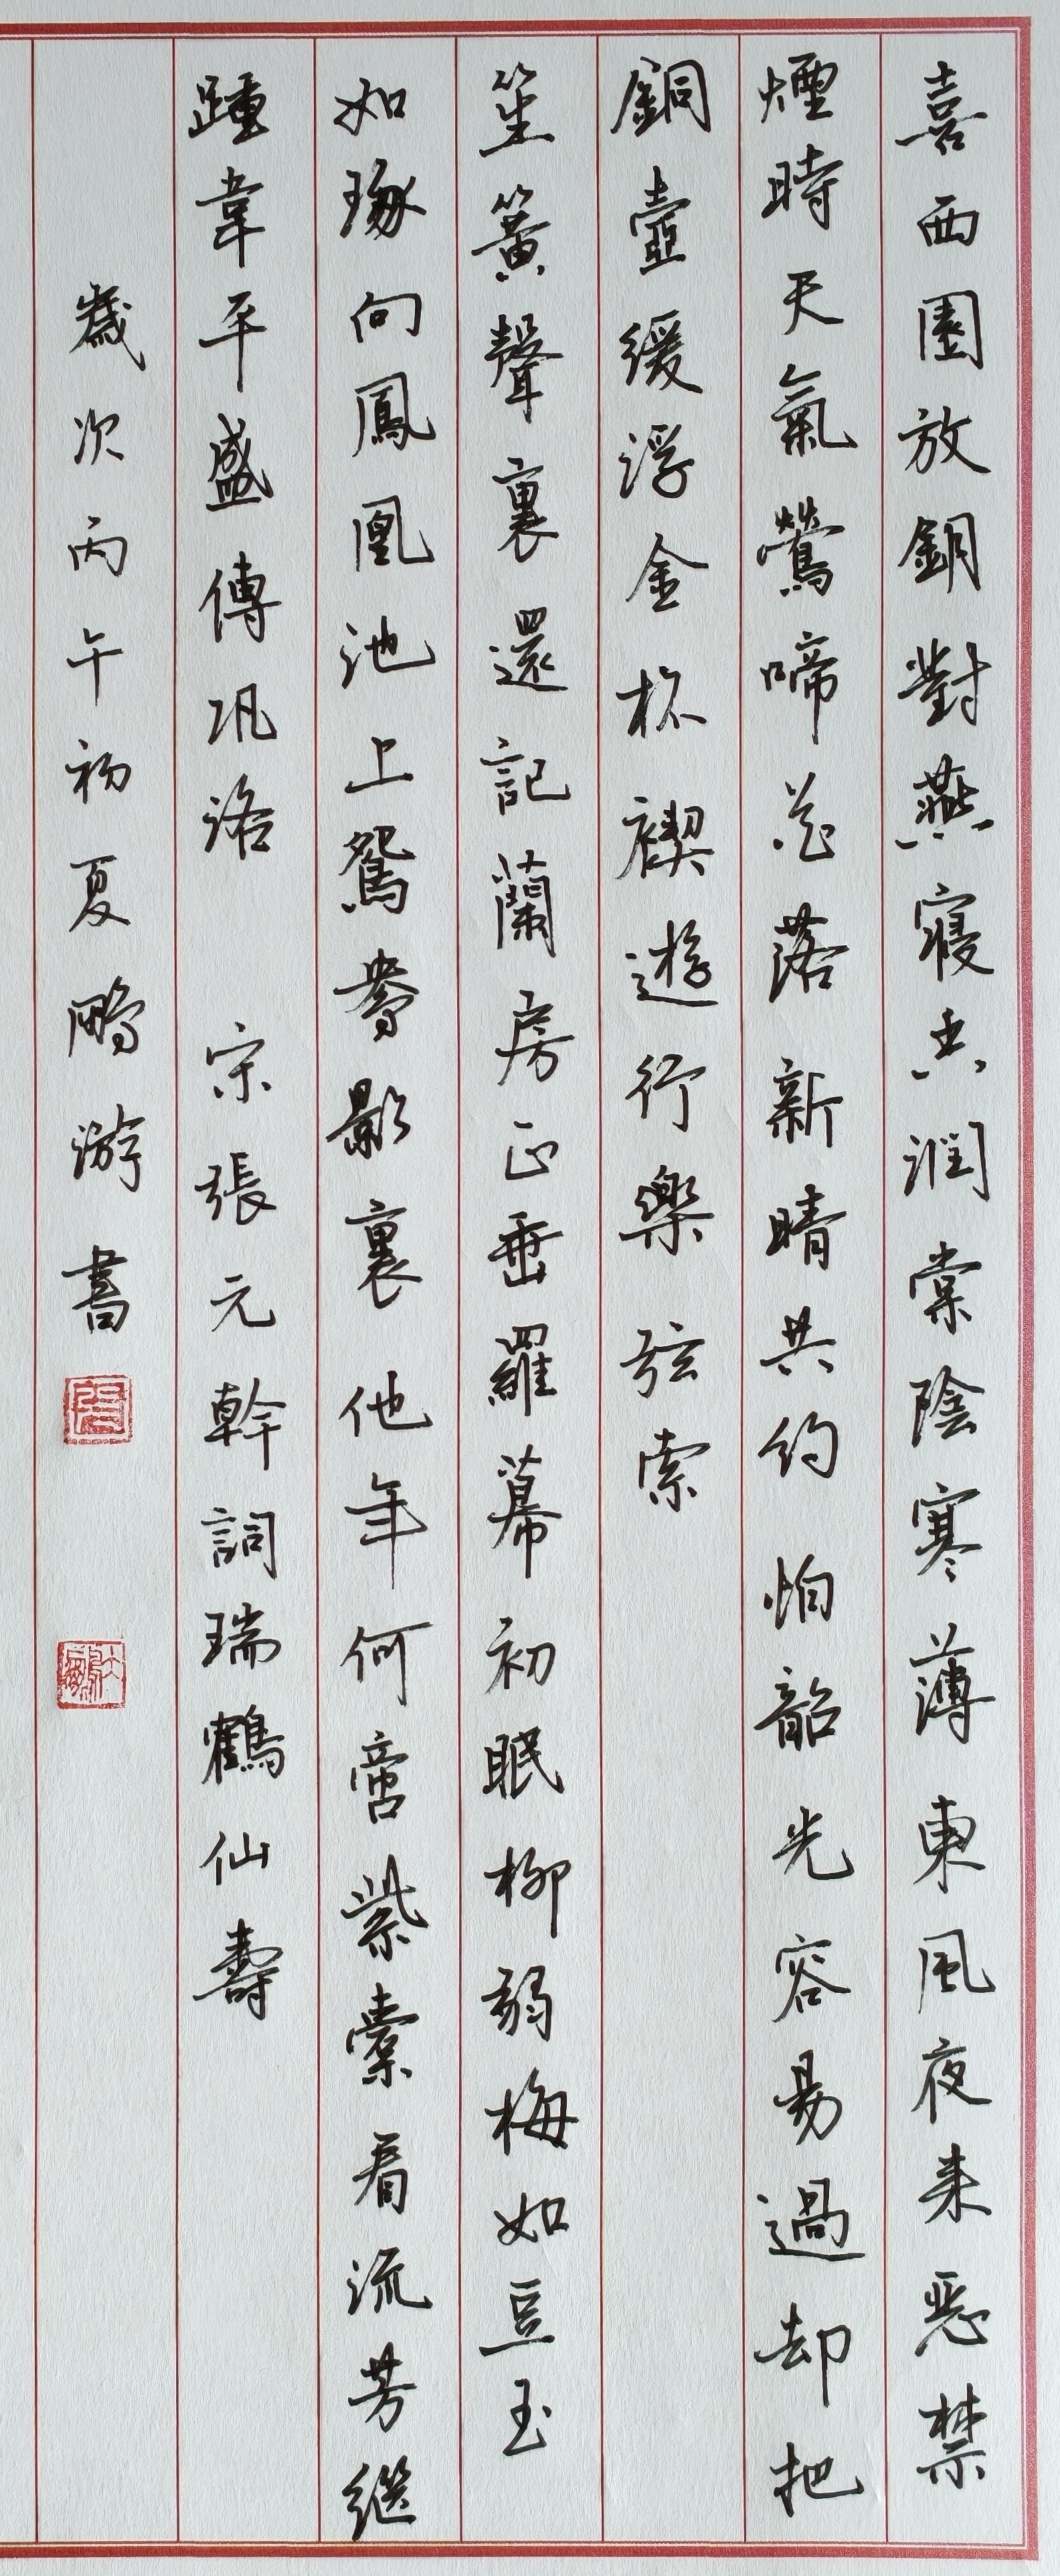 喜西園放鑰對燕寢香潤棠陰寒薄東風夜来惡禁
煙時天氣鶯啼花落新晴共約怕韶光容易過却把
銅壺緩浮金杯禊遊行樂弦索
笙簧聲裏還記蘭房正垂羅幕初眠柳弱梅如豆玉
如琢向鳳凰池上鴛鴦影裏他年何啻紫橐看流芳繼
踵韋平盛傳巩洛 宋張元幹詞瑞鶴仙壽
歲次丙午初夏鵬游書